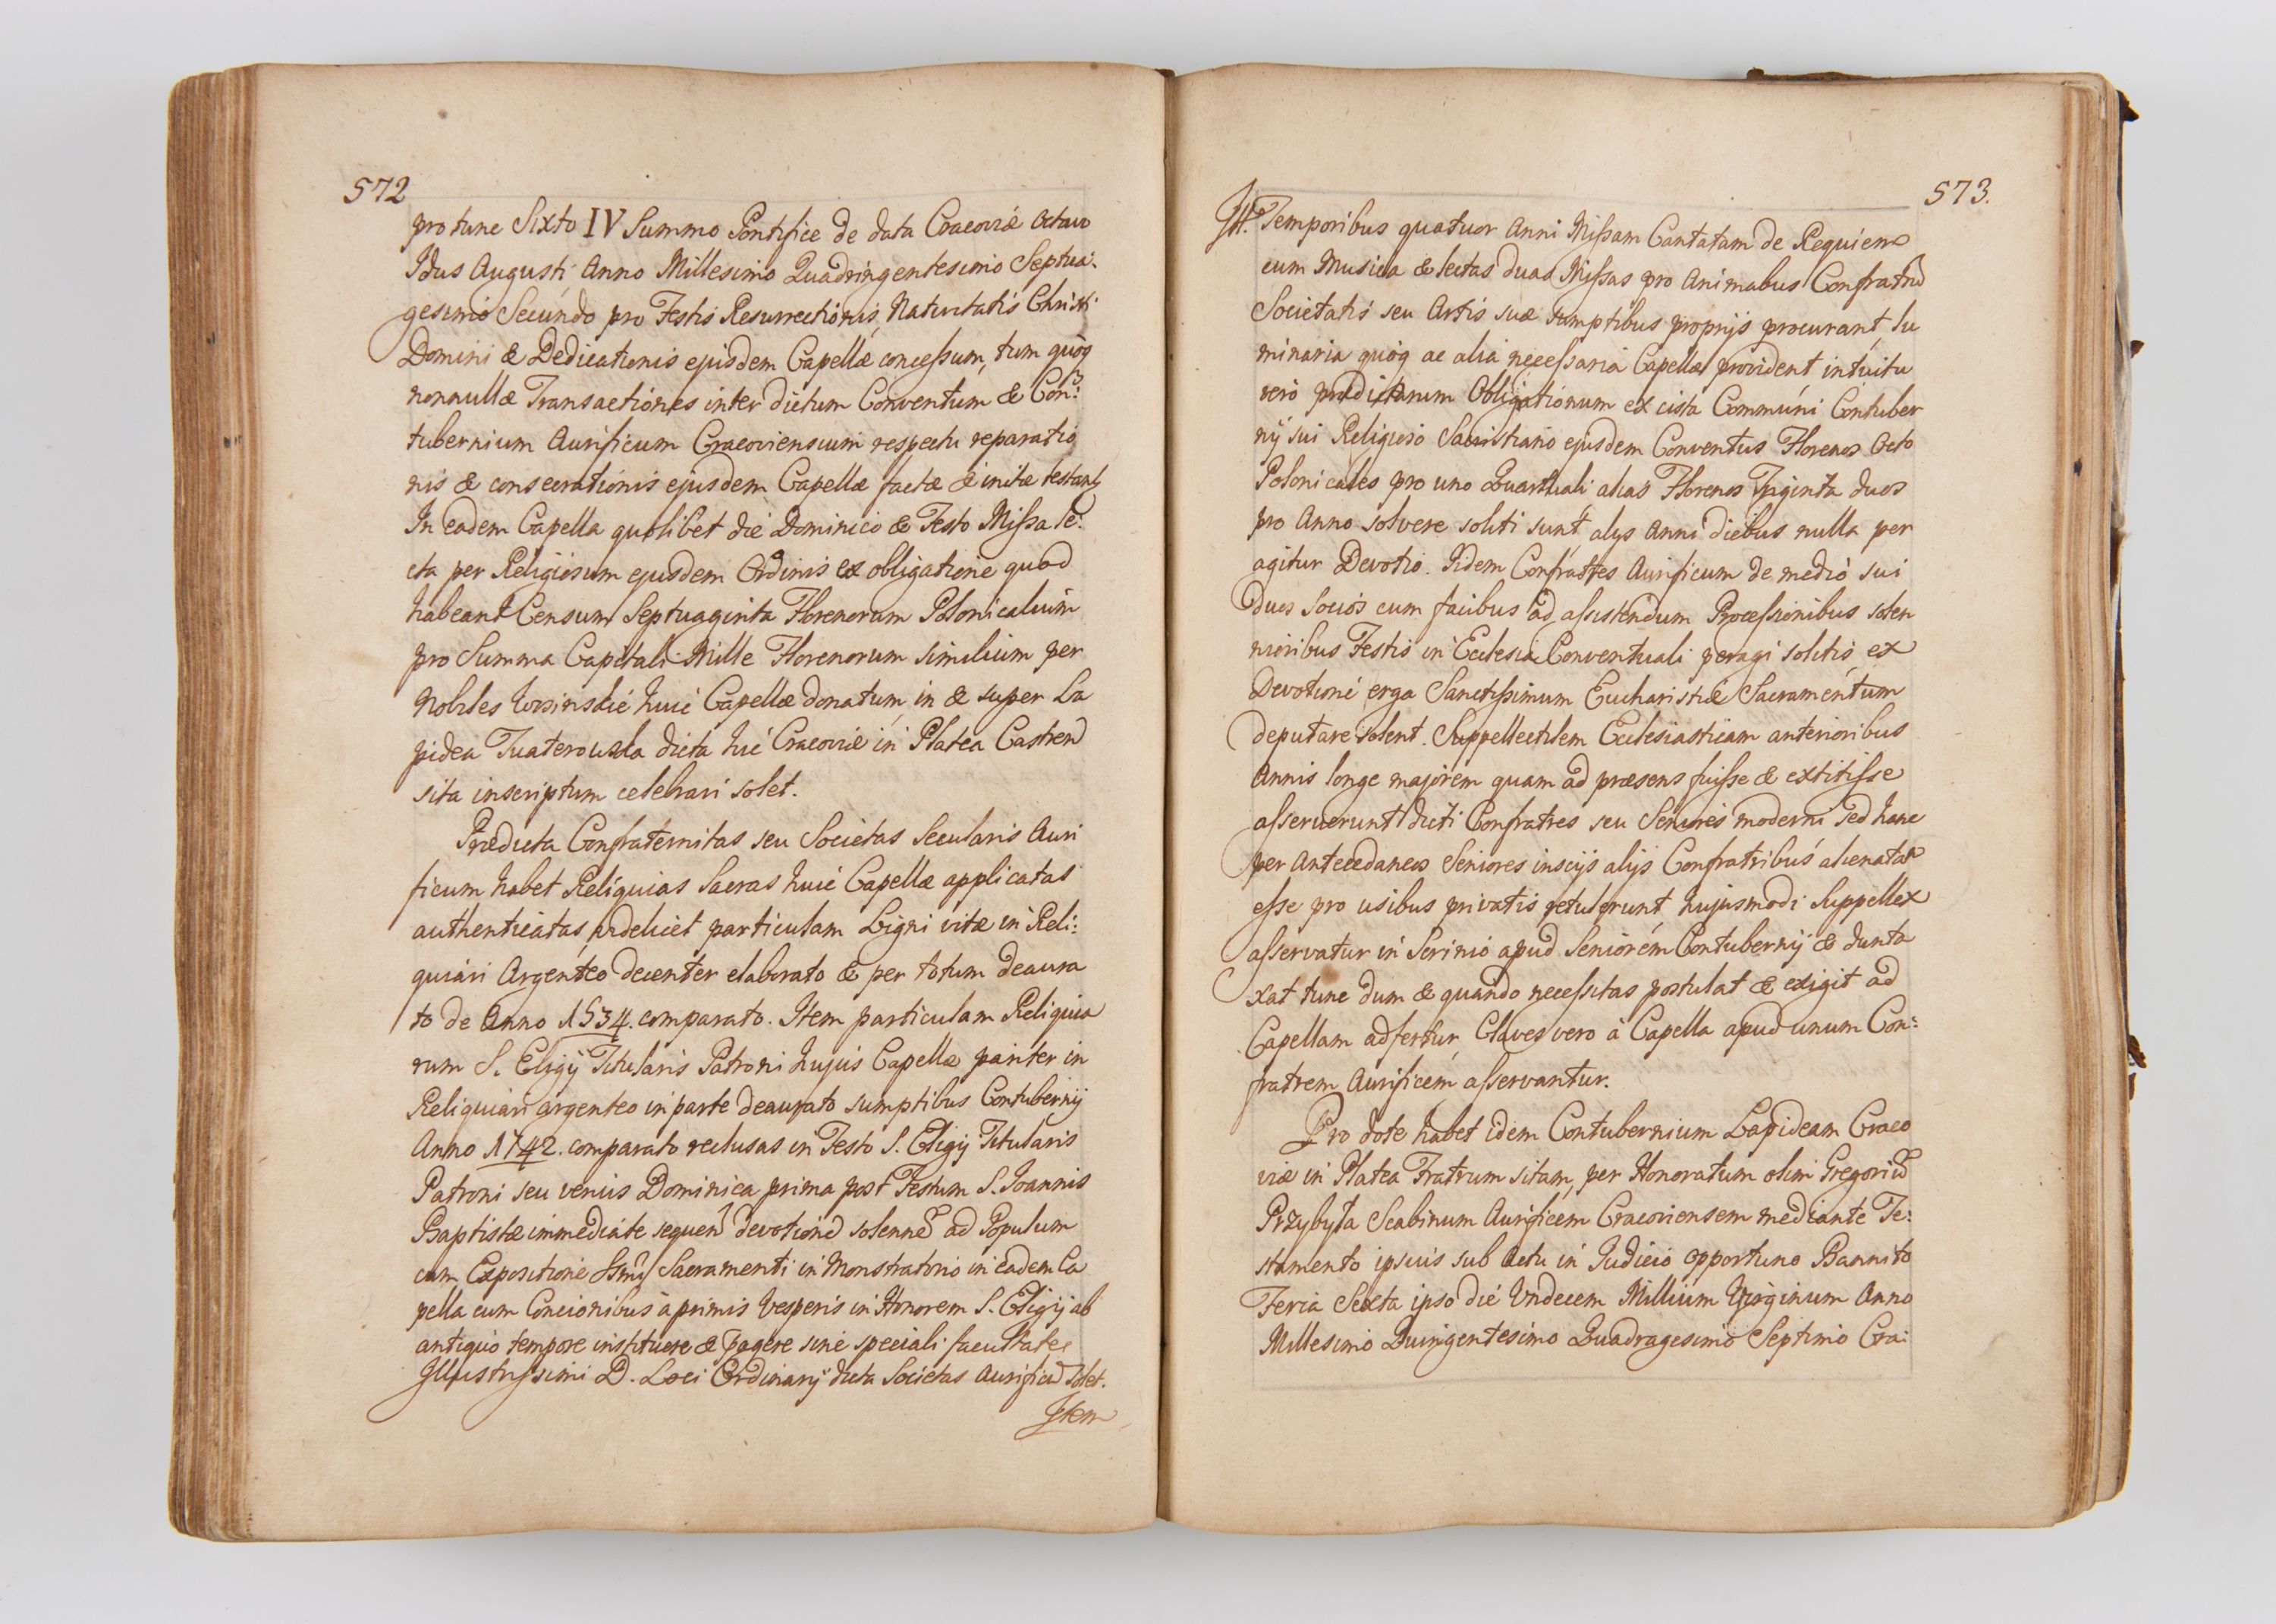 572
pro tunc Sixto IV Summo Pontifice de data Cracoviæ Octavo
Idus Augusti Anno Millesimo Quadringentesimo Septua:
gesimo Secundo pro Festis Resurrectionis, Nativitatis Christi
Domini & Dedicationis ejusdem Capellæ concessum, tum quoq
nonnullæ Transactiones inter dictum Conventum & Con:
tubernium Aurificum Cracoviensium respectu reparatio
nis & consecrationis ejusdem Capellæ factæ & initæ testant
In eadem Capella quolibet die Dominico & Festo Missa le:
cta per Religiosum ejusdem Ordinis ex obligatione quod
habeant Censum Septuaginta Florenorum Polonicalium
pro Summa Capitali Mille Florenorum similium per
Nobiles huic Capellæ donatum, in & super La
pidea dicta hic Cracoviæ in Platea Castren
sita inscriptum celebrari solet.
Prædicta Confraternitas seu Societas Secularis Auri
ficum habet Reliquias Sacras huic Capellæ applicatas
authenticatas, videlicet particulam Ligni vitæ in Reli:
quiari Argenteo decenter elaborato & per totum deaura
to de Anno 1534. comparato. Item particulam Reliquia
rum S. Eligij Titularis Patroni hujus Capellæ pariter in
Reliquiari argenteo in parte deaurato sumptibus Contubernij
Anno 1742. comparato reclusas in Festo S. Eligij Titularis
Patroni seu verius Dominica prima post Festum S. Joannis
Baptistæ immediate sequen devotione solenne ad Populum
cum Expositione Ssmi Sacramenti in Monstratorio in eadem Ca
pella cum Concionibus à primis Vesperis in Honorem S. Eligij ab
antiquo tempore instituere & pagere sine speciali facultate
Illustrissimi D. Loci Ordinarij dicta Societas Aurificu solet.
Item
573.
It. Temporibus quatuor Anni Missam Cantatam de Requiem
cum Musica & lectas duas Missas pro Animabus Confratru
Societatis seu Artis suæ sumptibus proprijs procurant, lu
minaria quoq ac alia necessaria Capellæ provident intuitu
vero prædictarum Obligationum ex cista Communi Contuber
nij sui Religioso Sacristiano ejusdem Conventus Florenos Octo
Polonicales pro uno Quartuali alias Florenos Triginta duos
pro Anno solvere soliti sunt alijs Anni diebus nulla per
agitur Devotio. Iidem Confratres Aurificum de medio sui
duos Socios cum facibus ad assistendum Processionibus solen
nioribus Festis in Ecclesia Conventuali peragi solitis, ex
Devotione erga Sanctissimum Eucharistiæ Sacramentum
deputare solent. Suppellectilem Ecclesiasticam anterioribus
Annis longe majorem quam ad præsens fuisse & extitisse
asseruerunt dicti Confratres seu Seniores moderni sed hanc
per Antecedaneos Seniores inscijs alijs Confratribus alienatam
esse pro usibus privatis retulerunt hujusmodi Suppellex
asservatur in Scrinio apud Seniorem Contubernij & dunta
xat tunc dum & quando necessitas postulat & exigit ad
Capellam adfertur, Claves vero à Capella apud unum Con:
fratrem Aurificem asservantur.
Pro dote habet idem Contubernium Lapideam Craco
viæ in Platea Fratrum sitam, per Honoratum olim Gregoriu
Przybyła Scabinum Aurificem Cracoviensem mediante Te:
stamento ipsius sub Actu in Judicio opportuno Bannito
Feria Sexta ipso die Undecem Millium Virginum Anno
Millesimo Quingentesimo Quadragesimo Septimo Cra: